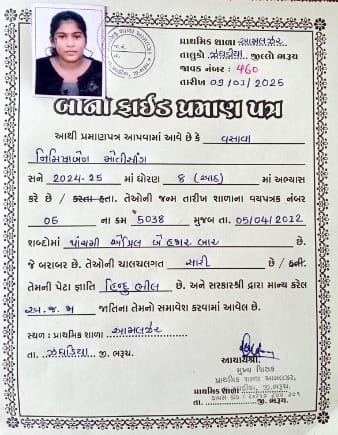 પ્રાથમિક શાળા આમલઝર
તાલુકો ઝઘડિયા જીલ્લો ભરૂચ
જાવક નંબર : 460
તારીખ 09/01/2025
બોનાફાઈડ પ્રમાણ પત્ર
આથી પ્રમાણપત્ર આપવામાં આવે છે કે વસાવા
સને 2024-25 માં ધોરણ 8 (આઠ) માં અભ્યાસ
કરે છે / કરતા હતા. તેઓની જન્મ તારીખ શાળાના વયપત્રક નંબર
06 ના ક્રમ 5038 મુજબ તા. 05/04/2012
શબ્દોમાં પાંચમી એપ્રિલ બે હજાર બાર છે.
જે બરાબર છે. તેઓની ચાલચલગત સારી છે / હતી.
તેમની પેટા જ્ઞાતિ હિન્દુ ભીલ છે. અને સરકારશ્રી દ્વારા માન્ય કરેલ
અ.જ.જા જાતિના તેમનો સમાવેશ કરવામાં આવેલ છે.
સ્થળ : પ્રાથમિક શાળા આમલઝર
તા. ઝઘડિયા જી. ભરૂચ.
આચાર્યશ્રી.
મુખ્ય શિક્ષક
પ્રાથમિક શાળા આમલઝર
પ્રાથમિક શાળા
તા. જી. ભરૂચ.